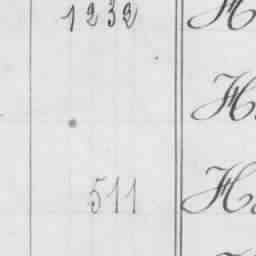 1232 H
H
511 H